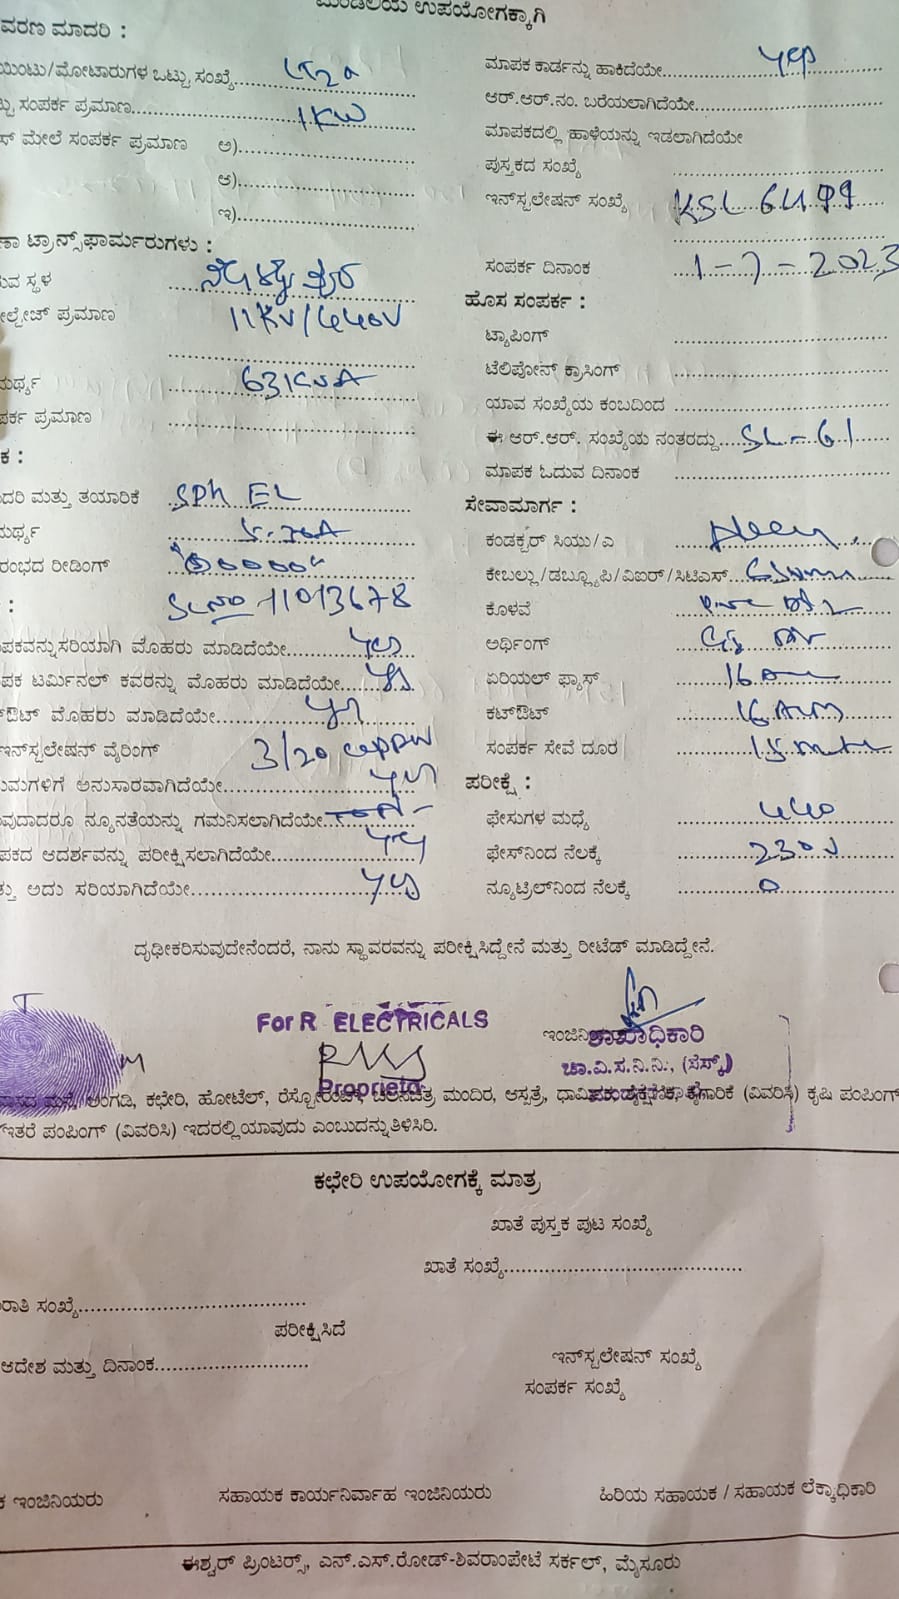 ಮಂಡಲಿಯ ಉಪಯೋಗಕ್ಕಾಗಿ
ವರಣ ಮಾದರಿ :
ಯಿಂಟು/ಮೋಟಾರುಗಳ ಒಟ್ಟು ಸಂಖ್ಯೆ LT2a
ಟ್ಟು ಸಂಪರ್ಕ ಪ್ರಮಾಣ 1KW
ಸ್ ಮೇಲೆ ಸಂಪರ್ಕ ಪ್ರಮಾಣ ಅ)
ಆ)
ಇ)
ಣಾ ಟ್ರಾನ್ಸ್‌ಫಾರ್ಮರುಗಳು :
ರುವ ಸ್ಥಳ
ೋಲ್ಟೇಜ್ ಪ್ರಮಾಣ 11KV/440V
ಮರ್ಥ್ಯ 63KVA
ಪರ್ಕ ಪ್ರಮಾಣ
ಕ :
ಾದರಿ ಮತ್ತು ತಯಾರಿಕೆ
ಮರ್ಥ್ಯ
ರಂಭದ ರೀಡಿಂಗ್
: SL NO 11013678
ಾಪಕವನ್ನು ಸರಿಯಾಗಿ ಮೊಹರು ಮಾಡಿದೆಯೇ yes
ಾಪಕ ಟರ್ಮಿನಲ್ ಕವರನ್ನು ಮೊಹರು ಮಾಡಿದೆಯೇ yes
್‌ಔಟ್ ಮೊಹರು ಮಾಡಿದೆಯೇ yes
ಇನ್‌ಸ್ಟಲೇಷನ್ ವೈರಿಂಗ್ 3/20
ಯಮಗಳಿಗೆ ಅನುಸಾರವಾಗಿದೆಯೇ yes
ಾವುದಾದರೂ ನ್ಯೂನತೆಯನ್ನು ಗಮನಿಸಲಾಗಿದೆಯೇ
ಾಪಕದ ಆದರ್ಶವನ್ನು ಪರೀಕ್ಷಿಸಲಾಗಿದೆಯೇ yes
ತ್ತು ಅದು ಸರಿಯಾಗಿದೆಯೇ yes
ಮಾಪಕ ಕಾರ್ಡನ್ನು ಹಾಕಿದೆಯೇ yes
ಆರ್.ಆರ್.ನಂ. ಬರೆಯಲಾಗಿದೆಯೇ
ಮಾಪಕದಲ್ಲಿ ಹಾಳೆಯನ್ನು ಇಡಲಾಗಿದೆಯೇ
ಪುಸ್ತಕದ ಸಂಖ್ಯೆ
ಇನ್‌ಸ್ಟಲೇಷನ್ ಸಂಖ್ಯೆ KSL
ಸಂಪರ್ಕ ದಿನಾಂಕ 1-7-2023
ಹೊಸ ಸಂಪರ್ಕ :
ಟ್ಯಾಪಿಂಗ್
ಟೆಲಿಪೋನ್ ಕ್ರಾಸಿಂಗ್
ಯಾವ ಸಂಖ್ಯೆಯ ಕಂಬದಿಂದ
ಈ ಆರ್.ಆರ್. ಸಂಖ್ಯೆಯ ನಂತರದ್ದು SL-61
ಮಾಪಕ ಓದುವ ದಿನಾಂಕ
ಸೇವಾಮಾರ್ಗ :
ಕಂಡಕ್ಟರ್ ಸಿಯು/ಎ
ಕೇಬಲ್ಲು/ಡಬ್ಲ್ಯೂಪಿ/ವಿಐರ್/ಸಿಟಿಎಸ್
ಕೊಳವೆ
ಅರ್ಥಿಂಗ್
ಏರಿಯಲ್ ಫ್ಯೂಸ್ 16
ಕಟ್‌ಔಟ್ 16
ಸಂಪರ್ಕ ಸೇವೆ ದೂರ
ಪರೀಕ್ಷೆ :
ಫೇಸುಗಳ ಮಧ್ಯೆ 440
ಫೇಸ್‌ನಿಂದ ನೆಲಕ್ಕೆ 230V
ನ್ಯೂಟ್ರಿಲ್‌ನಿಂದ ನೆಲಕ್ಕೆ 0
ದೃಢೀಕರಿಸುವುದೇನೆಂದರೆ, ನಾನು ಸ್ಥಾವರವನ್ನು ಪರೀಕ್ಷಿಸಿದ್ದೇನೆ ಮತ್ತು ರೀಟೆಡ್ ಮಾಡಿದ್ದೇನೆ.
For R ELECTRICALS
Proprieto
ಶಾಖಾಧಿಕಾರಿ
ಚಾ.ವಿ.ಸ.ನಿ.ನಿ., (ಸೆಸ್ಕ್)
ವಾಸದ ಮನೆ, ಅಂಗಡಿ, ಕಛೇರಿ, ಹೋಟೆಲ್, ರೆಸ್ಟೋರೆಂಟ್, ಚಲನಚಿತ್ರ ಮಂದಿರ, ಆಸ್ಪತ್ರೆ, (ವಿವರಿಸಿ) ಕೃಷಿ ಪಂಪಿಂಗ್
ಇತರೆ ಪಂಪಿಂಗ್ (ವಿವರಿಸಿ) ಇದರಲ್ಲಿ ಯಾವುದು ಎಂಬುದನ್ನು ತಿಳಿಸಿರಿ.
ಕಛೇರಿ ಉಪಯೋಗಕ್ಕೆ ಮಾತ್ರ
ಖಾತೆ ಪುಸ್ತಕ ಪುಟ ಸಂಖ್ಯೆ
ಖಾತೆ ಸಂಖ್ಯೆ
ರಾತಿ ಸಂಖ್ಯೆ
ಪರೀಕ್ಷಿಸಿದೆ
ಆದೇಶ ಮತ್ತು ದಿನಾಂಕ
ಇನ್‌ಸ್ಟಲೇಷನ್ ಸಂಖ್ಯೆ
ಸಂಪರ್ಕ ಸಂಖ್ಯೆ
ಕ ಇಂಜಿನಿಯರು ಸಹಾಯಕ ಕಾರ್ಯನಿರ್ವಾಹ ಇಂಜಿನಿಯರು ಹಿರಿಯ ಸಹಾಯಕ / ಸಹಾಯಕ ಲೆಕ್ಕಾಧಿಕಾರಿ
ಈಶ್ವರ್ ಪ್ರಿಂಟರ್ಸ್, ಎನ್.ಎಸ್.ರೋಡ್-ಶಿವರಾಂಪೇಟೆ ಸರ್ಕಲ್, ಮೈಸೂರು